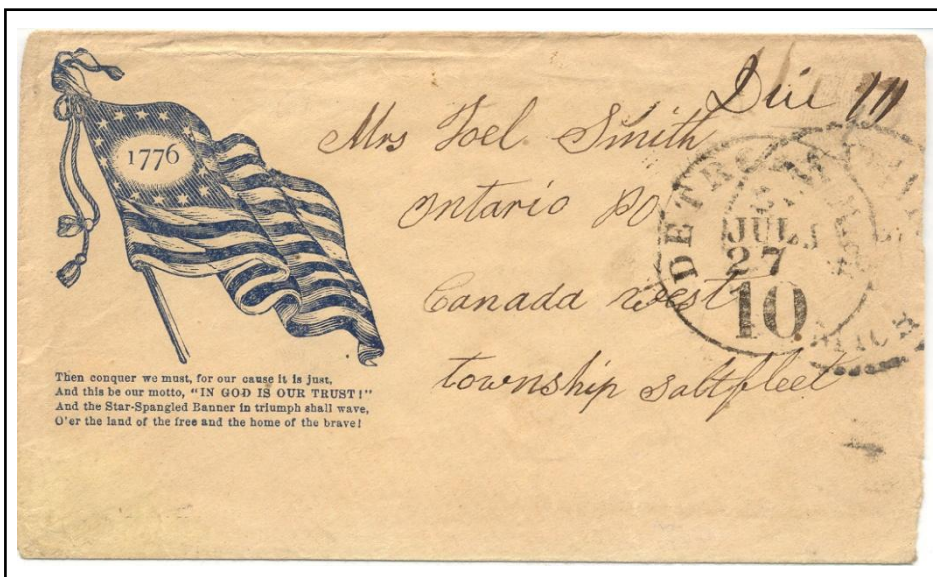 1776
Due 10
Mrs Joel Smith
Ontario PO
Canada West
township saltfleet
DETR MICH
JUL
27
10
Then conquer we must, for our cause it is just,
And this be our motto, "IN GOD IS OUR TRUST!"
And the Star-Spangled Banner in triumph shall wave,
O'er the land of the free and the home of the brave!